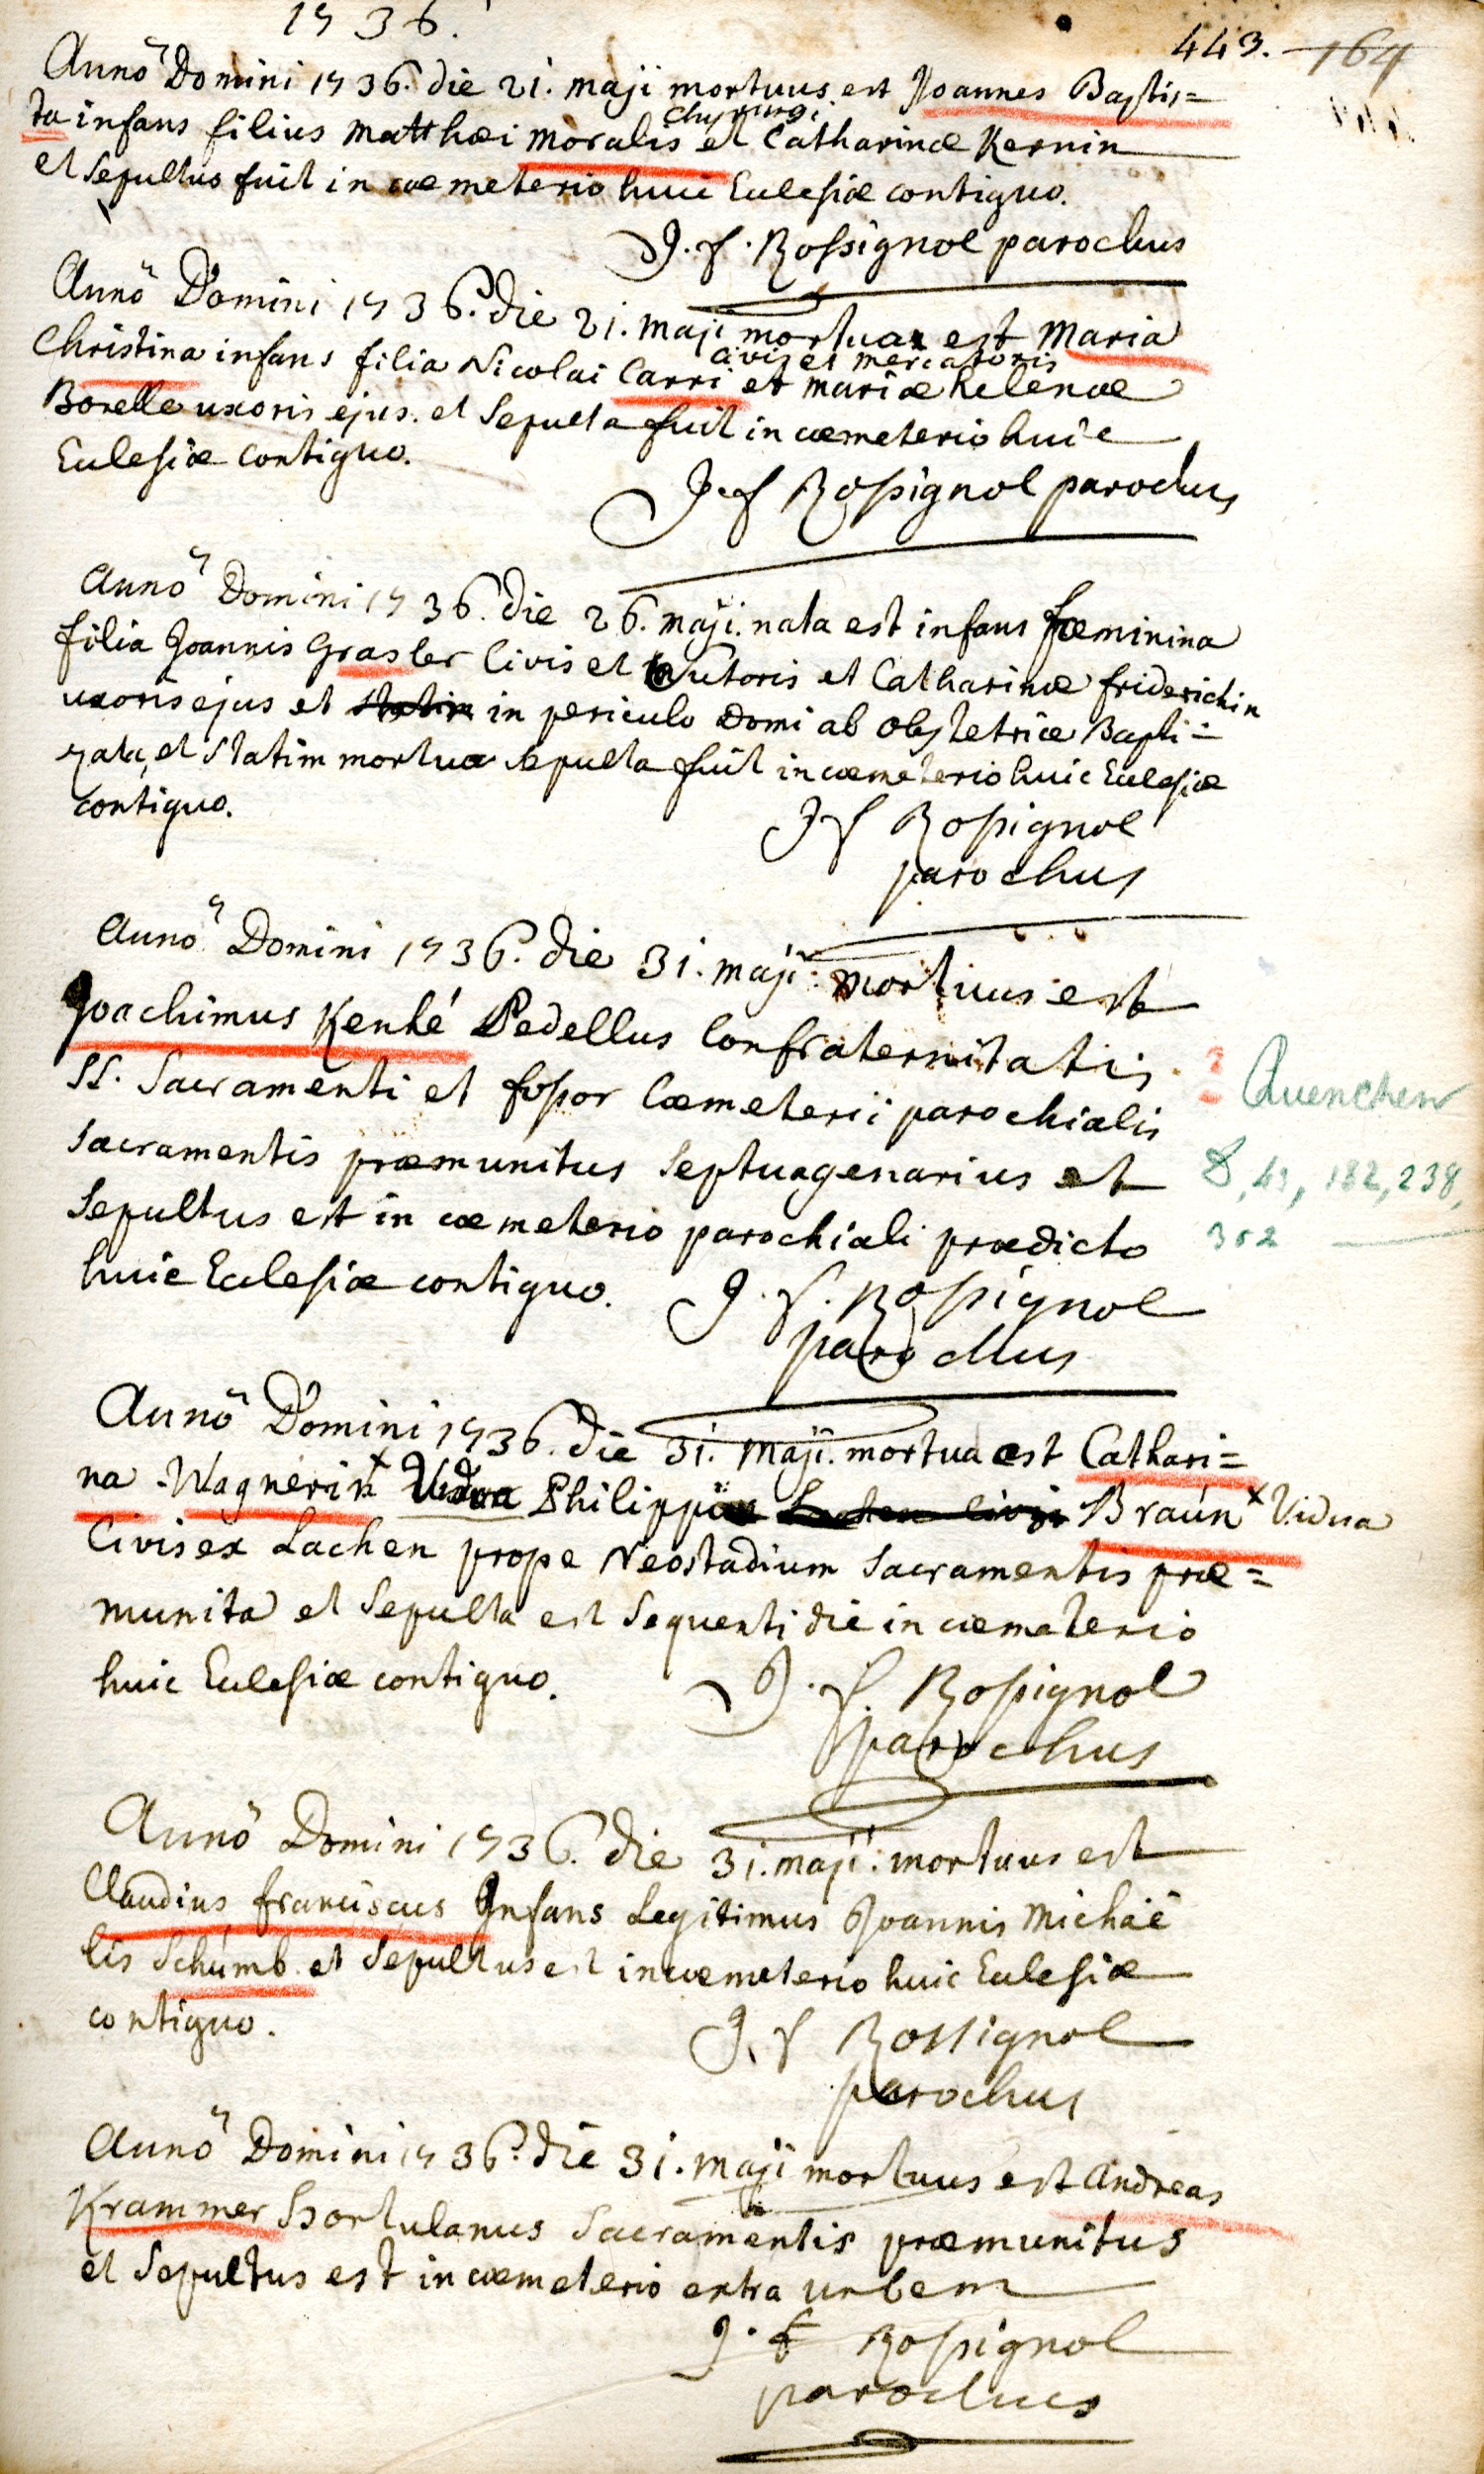 1736.
443. 164
Anno Domini 1736. die 21. maji mortuus est Joannes Baptis=
chyrurgi
ta infans filius Matthæi Moralis et Catharinæ Kernin
et sepultus fuit in cœmeterio huic Ecclesiæ contiguo.
J. f. Rossignol parochus
Anno Domini 1736. die 21. maji mortua est Maria
civis et mercatoris
Christina infans filia Nicolai Carri et mariæ helenæ
Borelle uxoris ejus. et sepulta fuit in cœmeterio huic
Ecclesiæ contiguo.
J. f Rossignol parochus
Anno Domini 1736. die 26. maji. nata est infans fœminina
filia Joannis Grasler Civis et Sutoris et Catharinæ friderichin
uxoris ejus et statim in periculo Domi ab obstetrice Bapti=
zata, et statim mortua sepulta fuit in cœmeterio huic Ecclesiæ
contiguo.
J f Rossignol
parochus
Anno Domini 1736. die 31. maji. mortuus est
Joachimus Kenké Pedellus Confraternitatis
SS. Sacramenti et fossor Cœmeterii parochialis
? Quenchen
sacramentis præmunitus septuagenarius et
8, 43, 182, 238,
Sepultus est in cœmeterio parochiali prædicto
302
huic Ecclesiæ contiguo.
J. f. Rossignol
parochus
Anno Domini 1736. die 31. maji. mortua est Cathari=
na Wagnerin x Vidua Philippi Lachen civis Braun x Vidua
Civis ex Lachen prope Neostadium sacramentis præ=
munita et sepulta est sequenti die in cœmeterio
huic Ecclesiæ contiguo.
J. f. Rossignol
parochus
Anno Domini 1736. die 31. maji. mortuus est
Claudius franciscus Infans Legitimus Joannis Michaë
lis Schumb et sepultus est in cœmeterio huic Ecclesiæ
contiguo.
J. f Rossignol
parochus
Anno Domini 1736. die 31. maji mortuus est Andreas
Krammer Hortulanus Sacramentis præmunitus
et sepultus est in cœmeterio extra urbem
J. f Rossignol
parochus